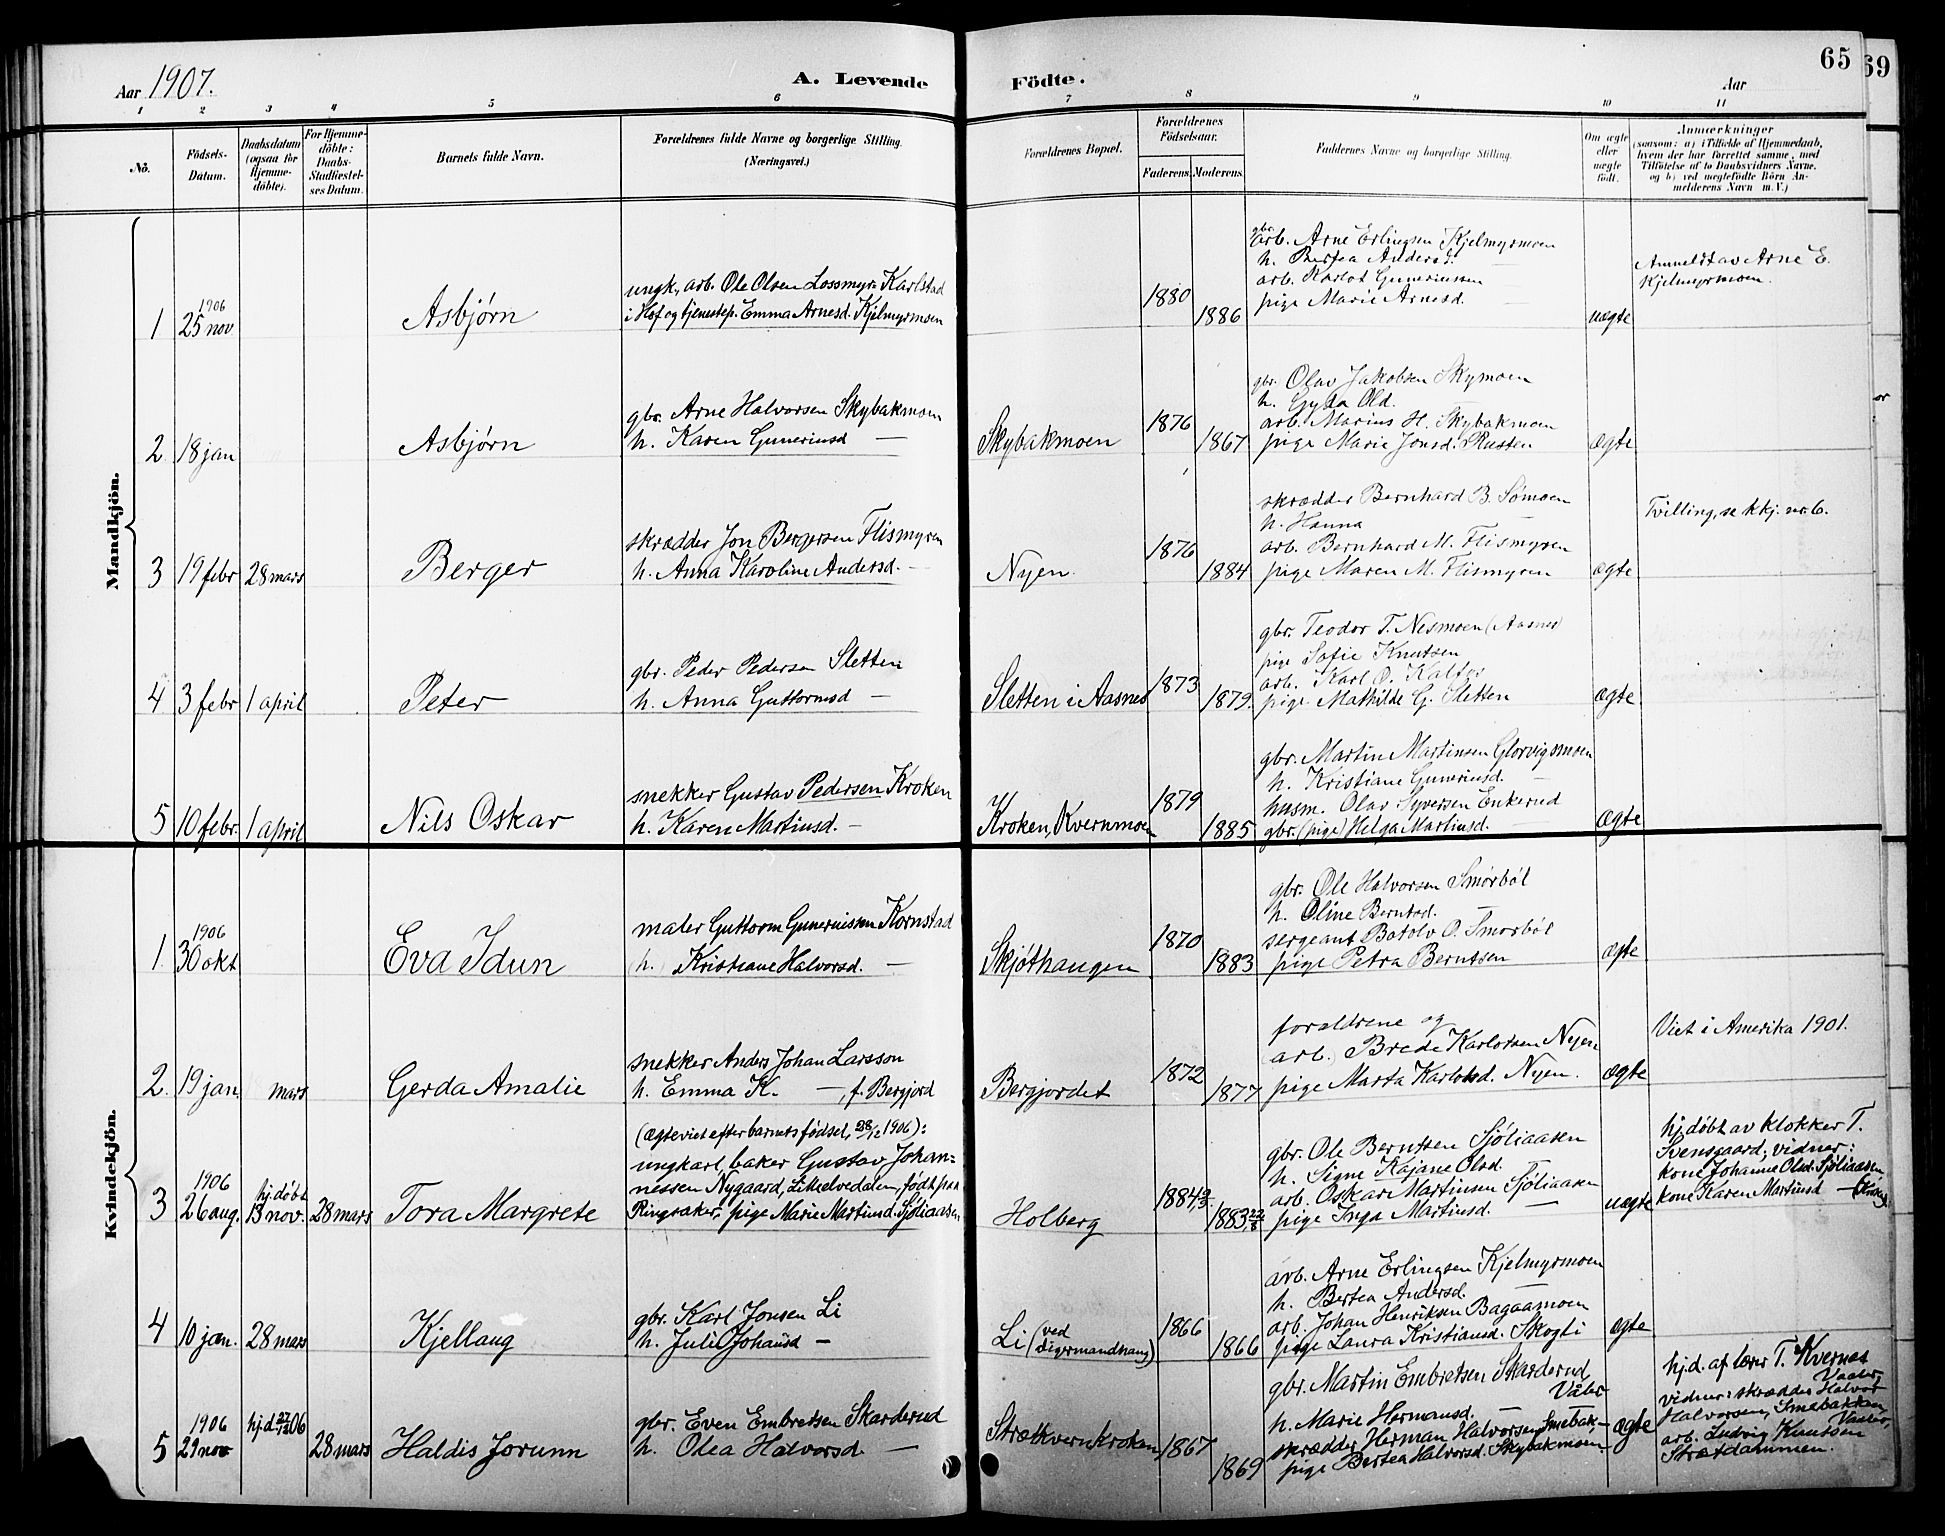 Aar 1907.
A. Levende
Födte.
Aar
65
69
1 2 3 4 5 6 7 8 9 10 11
Nô.
Födsels-
Datum.
Daabsdatum
(ogsaa for
Hjemme-
döbte).
For Hjemme-
döbte:
Daabs-
Stadfæstel-
ses Datum.
Barnets fulde Navn.
Forældrenes fulde Navne og borgerlige Stilling.
(Næringsvei.)
Forældrenes Bopæl.
Forældrenes
Födselsaar.
Faderens.
Moderens.
Faddernes Navne og borgerlige Stilling.
Om ægte
eller
uægte
födt.
Anmærkninger
(saasom: a) i Tilfælde af Hjemmedaab,
hvem der har forrettet samme, med
Tilföielse af to Daabsvidners Navne,
og b) ved uægtefödte Börn An-
melderens Navn m. V.)
Mandkjön.
1
1906
25 nov
Asbjørn
ungk., arb. Ole Olsen Lossmyr Karlstad
i Hof og tjenestep. Emma Arnesd. Kjelmyrmoen
1880
1886
gbr.
arb. Arne Erlingsen Kjelmyrmoen
h. Bertea Andersd. —
arb. Karlot Guneriussen
pige Marie Arnesd. —
uægte
Anmeldt av Arne E.
Kjelmyrmoen.
2
18 jan
Asbjørn
gbr. Arne Halvorsen Skybakmoen
h. Karen Guneriusd —
Skybakmoen
1876
1867
gbr. Olav Jakobsen Skymoen
h. Gyda Old. —
arb. Marius H. Skybakmoen
pige Marie Jonsd. Rusten
ægte
3
19 febr
28 mars
Berger
skrædder Jon Bergersen Flismyren
h. Anna Karoline Andersd. —
Nyen.
1876
1884
skrædder Bernhard B. Sømoen
h. Hanna —
arb. Bernhard M. Flismyren
pige Maren M. Flismyren
ægte
Tvilling, se kkj. nr. 6.
4
3 febr
1 april
Peter
gbr. Peder Pedersen Sletten
h. Anna Guttormsd —
Sletten i Aasnes
1873
1879.
gbr. Teodor T. Nesmoen (Aasnes)
pige Sofie Knutsen
arb. Karl O.
pige Mathilde G. Sletten
ægte
5
10 febr.
1 april
Nils Oskar
snekker Gustav Pedersen Kroken
h. Karen Martiusd. —
Kroken, Kvernmoen
1879
1885
gbr. Martin Martinsen Glorvigsmoen
h. Kristiane Gunerinsd. —
husm. Olav Syversen Enkerud
gbr. (pige) Helga Martinsd. —
ægte
Kvindekjön.
1.
1906
30 okt
Eva Idun
maler Guttorm Guneriussen Kornstad
(h.) Kristiane Halvorsd. —
Skjøthaugen
1870
1883
gbr. Ole Halvorsen Smørbøl
h. Oline Berntsd. —
sergeant Botolv O. Smørbøl
pige Petra Berntsen
ægte
2.
19 jan.
mars
Gerda Amalie
snekker Anders Johan Larsson
h. Emma K. —, f. Bergjord
Bergjordet
1872
1877
forældrene og
(arb.) Brede Karlotsen Nyen
pige Marta Karlotsd. Nyen.
ægte
Viet i Amerika 1901.
3
1906
26 aug.
hj.døbt
13 nov.
28 mars
Tora Margrete
(Ægteviet efter barnets fødsel, 28/12 1906):
ungkarl, baker Gustav Johan-
nessen Nygaard, Littelvedalen, født paa
Ringsaker, pige Marie Martinsd. Sjøliaasen
Holberg
1884
1883 22/8
gbr. Ole Berntsen Sjøliaasen
h. Signe Kajane Olsd. —
arb. Oskar Martinsen Sjøliaasen
pige Inga Martinsd. —
uægte
hj.døbt av klokker T.
Svensgaard; vidner:
kone Johanne Olsd. Sjøliaasen,
kone Karen Martinsd —
4
10 jan.
28 mars
Kjellaug
gbr. Karl Jonsen Li
h. Julie Johansd —
Li (ved
Digermandhaug)
1866
1866
arb. Arne Erlingsen Kjelmyrmoen
h. Bertea Andersd. —
arb. Johan Henriksen Bagaamoen
pige Laura Kristiansd. Skogli
ægte
5
1906
29 nov
hj.d. 27/12 06
28 mars
Haldis Jorunn
gbr. Even Embretsen Skarderud
h. Olea Halvorsd. —
Strætkvernkroken
1867
1869
gbr. Martin Embretsen Skarderud
Våler
h. Marie Hermansd. —
skrædder Herman Halvorsen Smebak-
pige Bertea Halvorsd. Skybakmoen
ægte
hj.d. af lærer T. Kvernes
Vaaler,
vidner: skrædder Halvor
Halvorsen, Smebakken,
Vaaler,
arb. Ludvig Knutsen
Strætdammen.